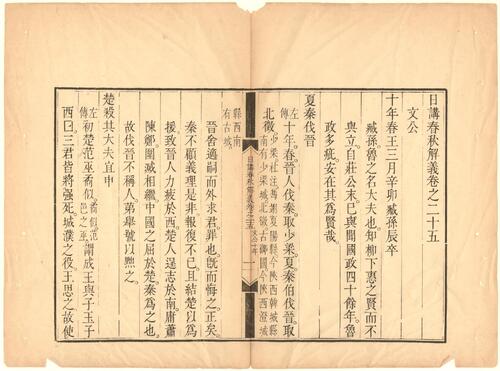 日講春秋解義卷之二十五
文公
十年春王三月辛卯臧孫辰卒
臧孫魯之名大夫也知柳下惠之賢而不
與立自莊公末已與聞國政四十餘年魯
政多疵安在其為賢哉
夏秦伐晉
左傳十年春晉人伐秦取少梁夏秦伯伐晉取
北徵
縣西南
有古城
日講春秋解義卷之二十五
晉舍適嗣而外求君罪也既而悔之正矣
秦不顧義理是非報復不已且結楚以為
援致晉人力疲於西楚人逞志於南庸蕭
陳鄭圍滅相繼中國之屈於楚秦為之也
故伐晉不稱人第舉號以黜之
楚殺其大夫宜申
左傳初楚范巫矞似謂成王與子玉子
西曰三君皆將强死城濮之役王思之故使